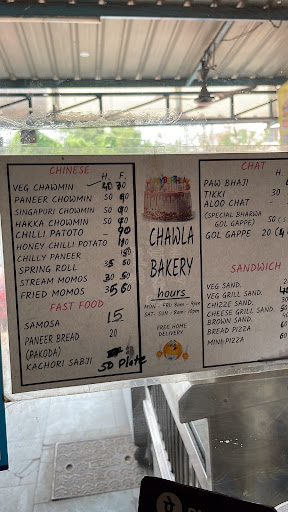 CHINESE
H. F.
VEG CHAWMIN
PANEER CHOWMIN 50 90
SINGAPURI CHOWMIN 50 90
HAKKA CHOWMIN 50 90
CHILLI PATOTO 90
HONEY CHILLI POTATO
CHILLY PANEER
SPRING ROLL 50
STREAM MOMOS 30 50
FRIED MOMOS 35 60
FAST FOOD
SAMOSA 15
PANEER BREAD 20
(PAKODA)
KACHORI SABJI 50 Plate
HAPPY BIRTHDAY
CHAWLA
BAKERY
hours
MON - FRI: 8am - 9pm
SAT- SUN : 8am - 10pm
FREE HOME
DELIVERY
CHAT
H.
PAW BHAJI
TIKKI 30
ALOO CHAT -
(SPECIAL BHARWA
GOL GAPPE) 50
GOL GAPPE 20
SANDWICH
VEG SAND.
VEG GRILL SAND.
CHIZZE SAND.
CHEESE GRILL SAND.
BROWN SAND.
BREAD PIZZA
MINI PIZZA